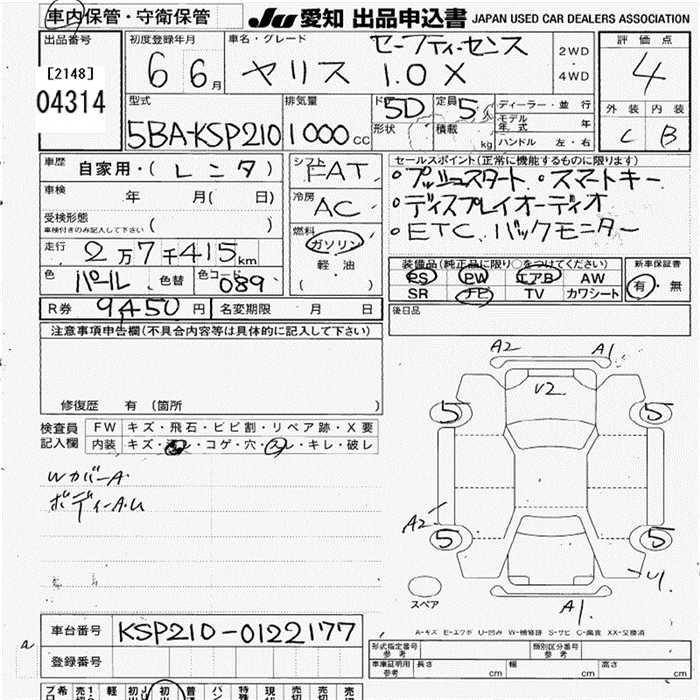 車内保管・守衛保管
JU 愛知 出品申込書 JAPAN USED CAR DEALERS ASSOCIATION
出品番号 初度登録年月 車名・グレード セーフティ・センス 2WD 評価点
[2148] 04314
6 6月 ヤリス 1.0 X ・ 4WD 4
型式 排気量 ドア 5D 定員 5 ディーラー・並行 外装 内装
5BA-KSP210 1000cc 形状 積載 kg モデル年式 年 C B
ハンドル 左・右
車歴 自家用・(レンタ) シフト FAT セールスポイント(正常に機能するものに限ります)
車検 年 月(日) 冷房 AC ・プッシュスタート ・スマートキー
受検形態 車検付きのみ記入して下さい ( ) ・ディスプレイオーディオ
走行 2万7千415km 燃料 ガソリン ・ETC. バックモニター
色 パール 色替 色コード 089 軽油 ( )
装備品(純正品に限り○をつけてください) 新車保証書
PS PW エアB AW 有・無
SR ナビ TV カワシート
R券 9450円 名変期限 月 日 後日品
注意事項申告欄(不具合内容等は具体的に記入して下さい)
修復歴 有 (箇所 )
検査員記入欄 FW キズ・飛石・ヒビ割・リペア跡・X要
内装 キズ・ヨゴレ・コゲ・穴・スレ・キレ・破レ
WカバーA
ボディーA.U
A2 A1
V2
5 5
A2 5 5
U1
スペア A1
A-キズ E-エクボ U-凹み W-補修跡 S-サビ C-腐食 XX-交換済
車台番号 KSP210-0122177
a
登録番号
形式指定番号 参考 類別区分番号 参考
車庫証明用 参考 長さ cm 幅 cm 高さ cm